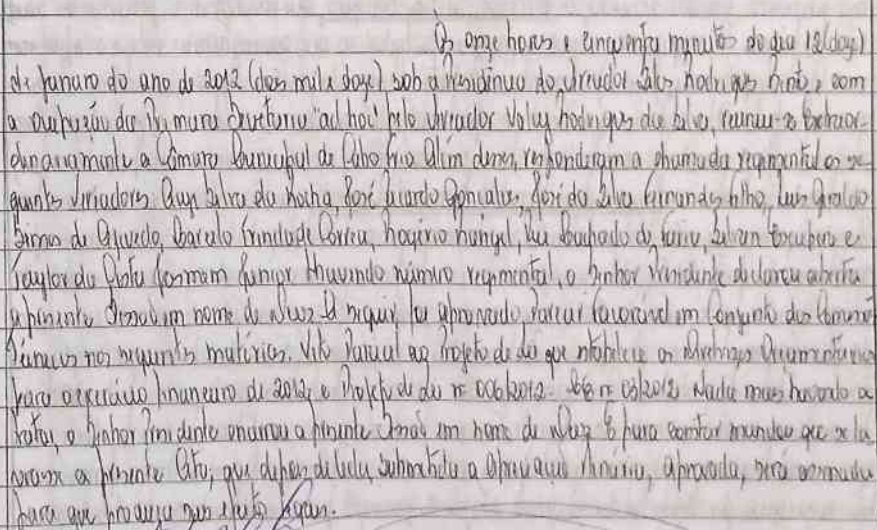 Às onze horas e cinquenta minutos do dia 12 (doze)
de janeiro do ano de 2012 (dois mil e doze) sob a Presidência do Vereador Silas Rodrigues Bento, com
a ocupação da Primeira Secretaria "ad hoc" pelo Vereador Valcy Rodrigues da Silva, reuniu-se Extraor-
dinariamente a Câmara Municipal de Cabo Frio. Além desses, responderam a chamada regimental os se-
guintes Vereadores: Silva da Rocha, José Ricardo Gonçalves, José da Silva Fernandes Filho, Luis Geraldo
Simas de Azevedo, Marcelo Trindade Corrêa, Rogério Rangel, Rui Machado de Faria, e
Taylor da Costa Jasmim Junior. Havendo número regimental, o Senhor Presidente declarou aberta
a presente Sessão em nome de Deus. A seguir foi aprovado Parecer favorável em Conjunto das Comissões
Técnicas nas seguintes matérias: Veto Parcial ao Projeto de Lei que estabelece as Diretrizes Orçamentárias
para o exercício financeiro de 2012, e Projeto de Lei nº 006/2012. nº 03/2012. Nada mais havendo a
tratar, o Senhor Presidente encerrou a presente Sessão em nome de Deus. E para constar mandou que se la-
vrasse a presente Ata, que depois de lida, submetida a apreciação Plenária, aprovada, será assinada
para que produza seus efeitos legais.